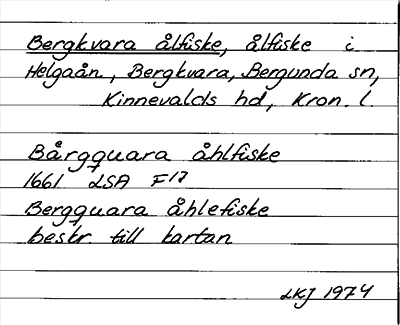 Bergkvara ålfiske, ålfiske i
Helgaån, Bergkvara, Bergunda sn,
Kinnevalds hd, Kron. l.
Bårgquara åhlfiske
1661 LSA F17
Bergquara åhlefiske
beskr till kartan
LKJ 1974